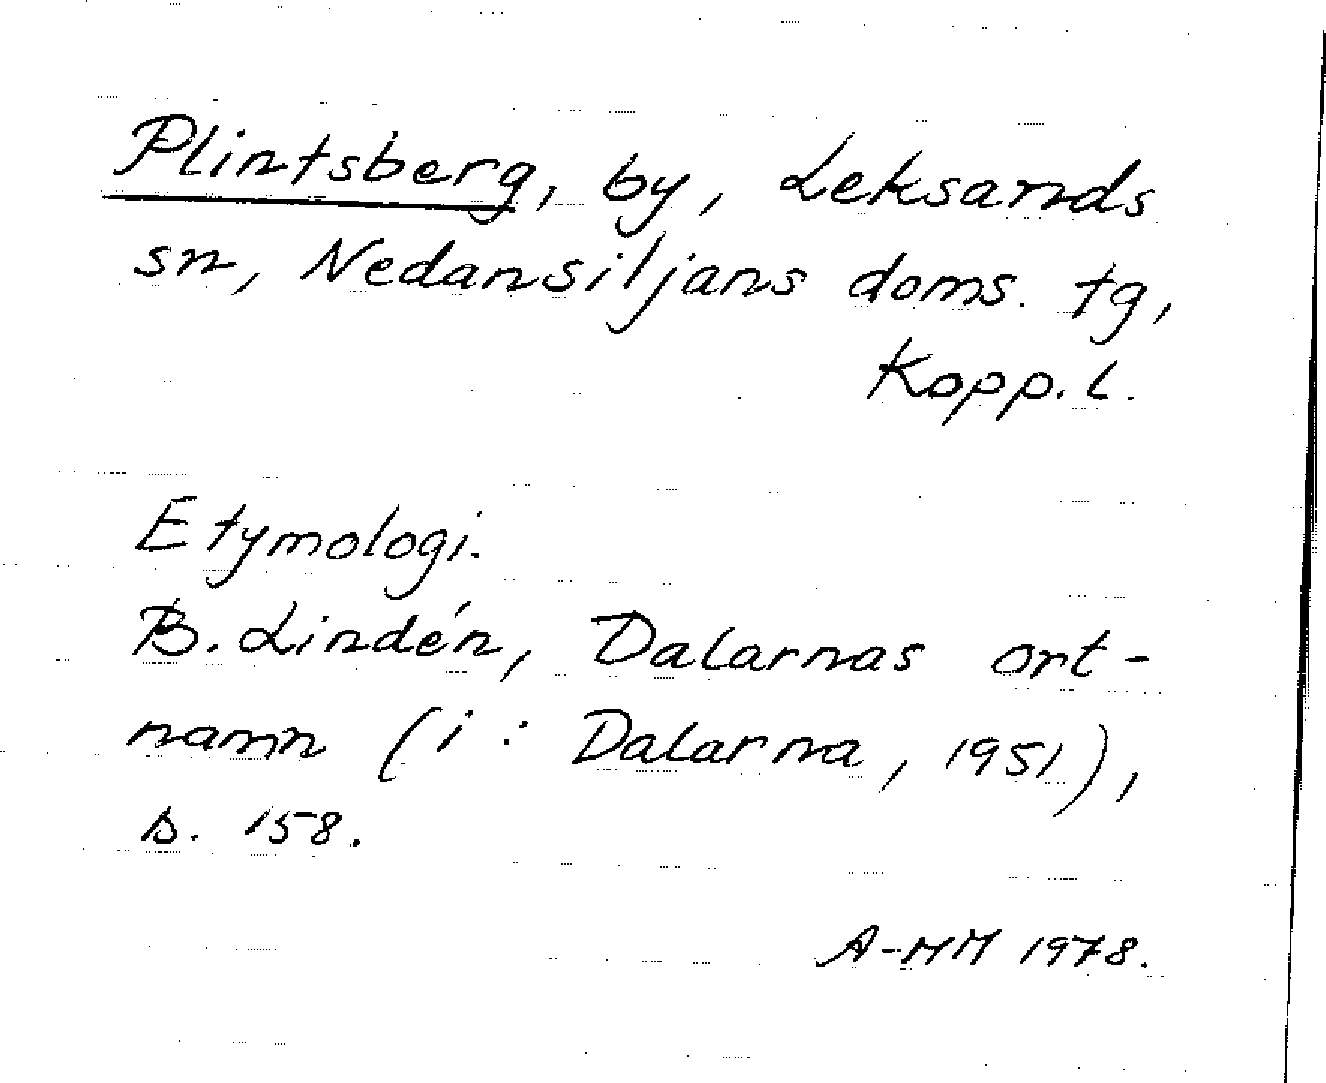 Plintsberg, by, Leksands
sn, Nedansiljans doms. tg,
Kopp. l.
Etymologi.
B. Lindén, Dalarnas ort-
namn (i: Dalarna, 1951),
s. 158.
A-MM 1978.